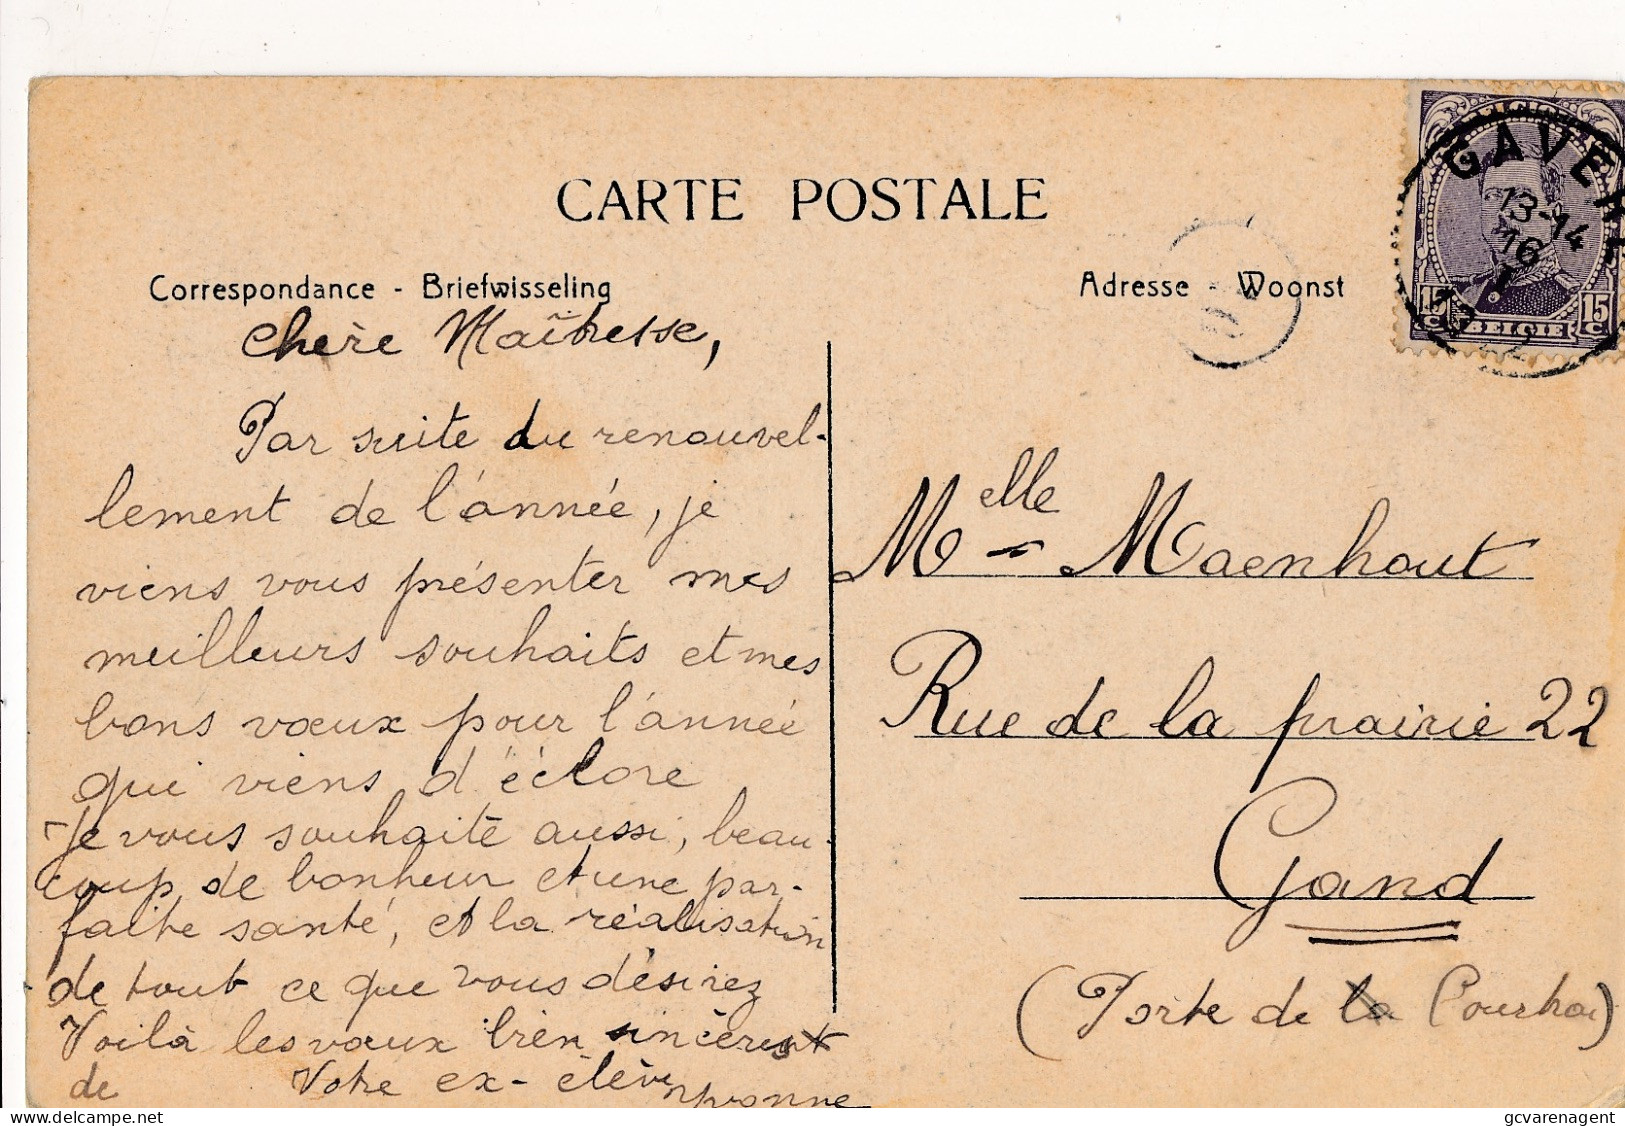 CARTE POSTALE
Correspondance - Briefwisseling
Adresse - Woonst
GAVERE
13-14
16
I
BELGIE
15 C
15 C
Chère Maîtresse,
Par suite du renouvel-
lement de l'année, je
viens vous présenter mes
meilleurs souhaits et mes
bons vœux pour l'année
qui viens d'éclore
Je vous souhaite aussi, beau-
coup de bonheur et une par-
faite santé, et la réalisation
de tout ce que vous désirez
Voilà les vœux bien sincères
de Votre ex-élève
Yvonne
Melle Maenhout
Rue de la prairie 22
Gand
(Porte de la Courtrai)
delcampe.net
gcvarenagent